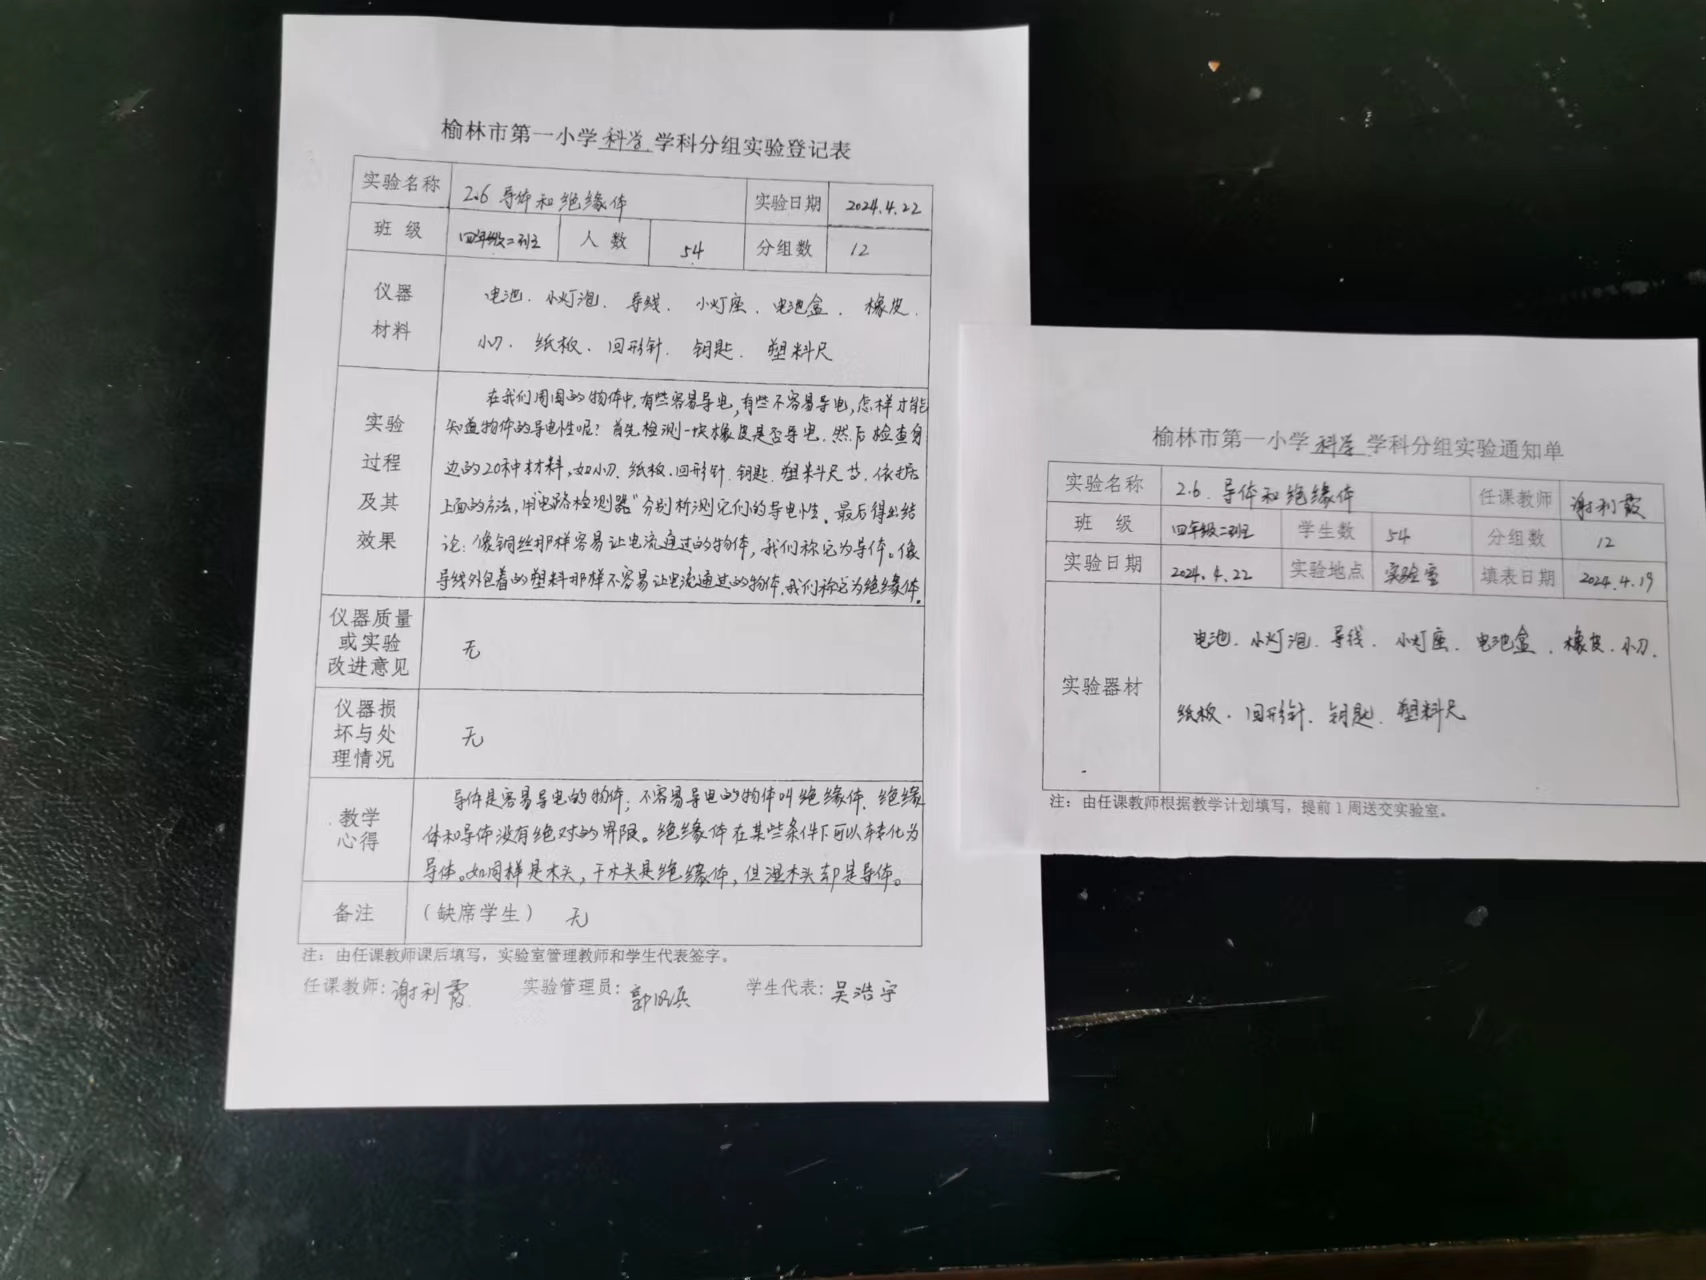 榆林市第一小学科学学科分组实验登记表
实验名称 2.6 导体和绝缘体 实验日期 2024.4.22
班 级 四年级二班 人 数 54 分组数 12
仪器
材料
电池、小灯泡、导线、小灯座、电池盒、橡皮、
小刀、纸板、回形针、钥匙、塑料尺
实验
过程
及其
效果
在我们周围的物体中,有些容易导电,有些不容易导电,怎样才能
知道物体的导电性呢?首先检测一块橡皮是否导电,然后检查身
边的20种材料,如小刀、纸板、回形针、钥匙、塑料尺等,依据
上面的方法,用"电路检测器"分别析测它们的导电性。最后得出结
论:像铜丝那样容易让电流通过的物体,我们称它为导体。像
导线外包着的塑料那样不容易让电流通过的物体,我们称它为绝缘体。
仪器质量
或实验
改进意见
无
仪器损
坏与处
理情况
无
教学
心得
导体是容易导电的物体,不容易导电的物体叫绝缘体,绝缘
体和导体没有绝对的界限。绝缘体在某些条件下可以转化为
导体。如同样是木头,干木头是绝缘体,但湿木头却是导体。
备注 (缺席学生) 无
注:由任课教师课后填写,实验室管理教师和学生代表签字。
任课教师:谢利霞 实验管理员: 学生代表:吴浩宇
榆林市第一小学科学学科分组实验通知单
实验名称 2.6、导体和绝缘体 任课教师 谢利霞
班 级 四年级二班 学生数 54 分组数 12
实验日期 2024.4.22 实验地点 实验室 填表日期 2024.4.19
实验器材
电池、小灯泡、导线、小灯座、电池盒、橡皮、小刀、
纸板、回形针、钥匙、塑料尺
注:由任课教师根据教学计划填写,提前1周送交实验室。